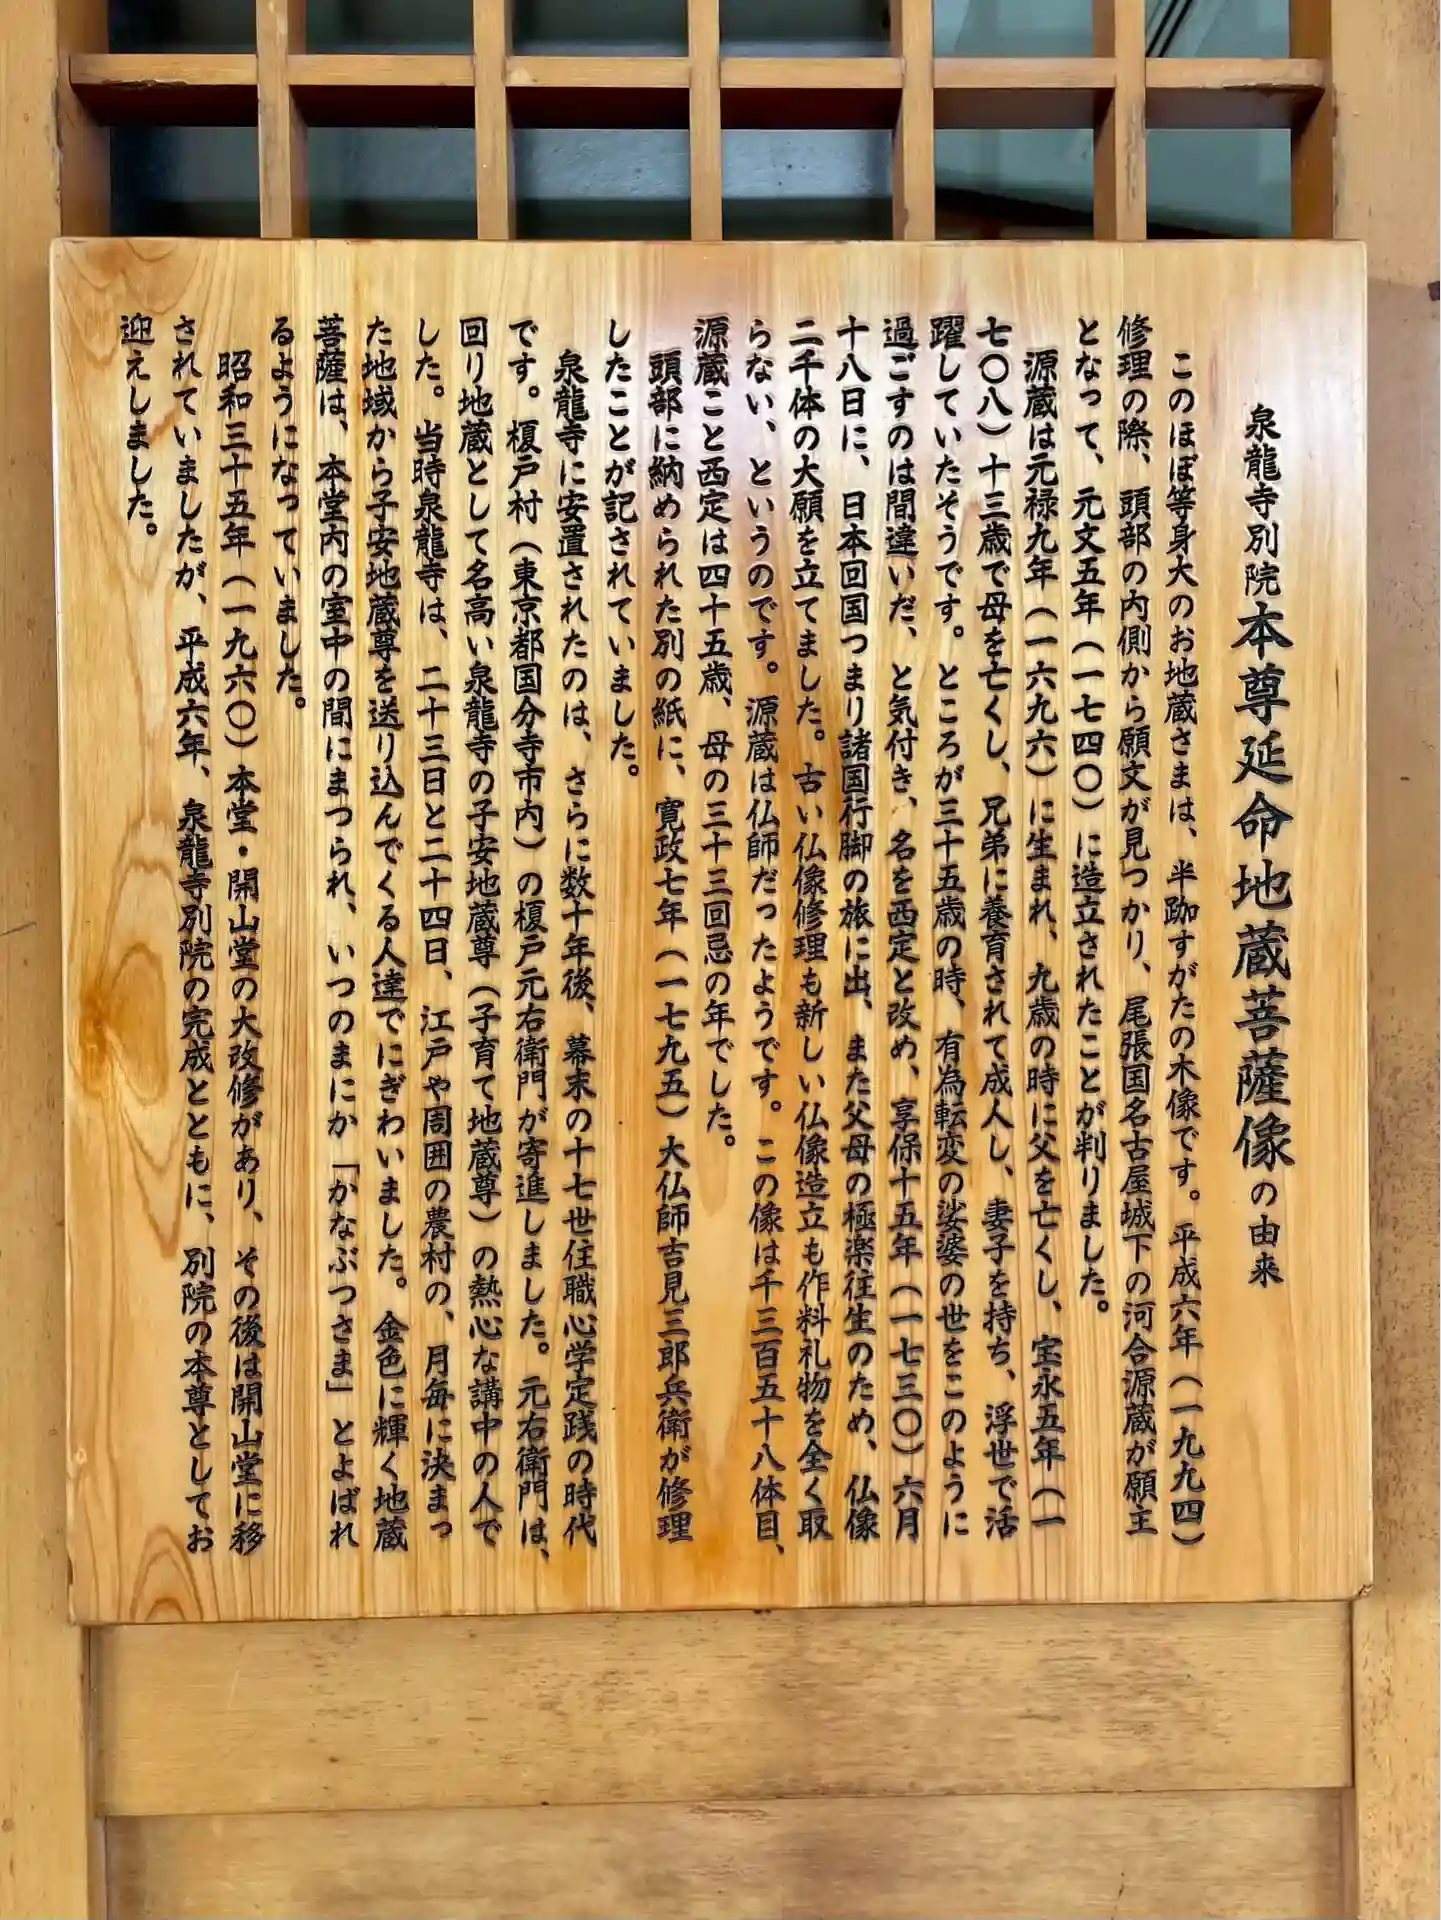 泉龍寺別院本尊延命地蔵菩薩像の由来
このほぼ等身大のお地蔵さまは、半跏すがたの木像です。平成六年（一九九四）
修理の際、頭部の内側から願文が見つかり、尾張国名古屋城下の河合源蔵が願主
となって、元文五年（一七四〇）に造立されたことが判りました。
源蔵は元禄九年（一六九六）に生まれ、九歳の時に父を亡くし、宝永五年（一
七〇八）十三歳で母を亡くし、兄弟に養育されて成人し、妻子を持ち、浮世で活
躍していたそうです。ところが三十五歳の時、有為転変の娑婆の世をこのように
過ごすのは間違いだ、と気付き、名を西定と改め、享保十五年（一七三〇）六月
十八日に、日本回国つまり諸国行脚の旅に出、また父母の極楽往生のため、仏像
二千体の大願を立てました。古い仏像修理も新しい仏像造立も作料礼物を全く取
らない、というのです。源蔵は仏師だったようです。この像は千三百五十八体目、
源蔵こと西定は四十五歳、母の三十三回忌の年でした。
頭部に納められた別の紙に、寛政七年（一七九五）大仏師吉見三郎兵衛が修理
したことが記されていました。
泉龍寺に安置されたのは、さらに数十年後、幕末の十七世住職心学定践の時代
です。榎戸村（東京都国分寺市内）の榎戸元右衛門が寄進しました。元右衛門は、
回り地蔵として名高い泉龍寺の子安地蔵尊（子育て地蔵尊）の熱心な講中の人で
した。当時泉龍寺は、二十三日と二十四日、江戸や周囲の農村の、月毎に決まっ
た地域から子安地蔵尊を送り込んでくる人達でにぎわいました。金色に輝く地蔵
菩薩は、本堂内の室中の間にまつられ、いつのまにか「かなぶつさま」とよばれ
るようになっていました。
昭和三十五年（一九六〇）本堂・開山堂の大改修があり、その後は開山堂に移
されていましたが、平成六年、泉龍寺別院の完成とともに、別院の本尊としてお
迎えしました。